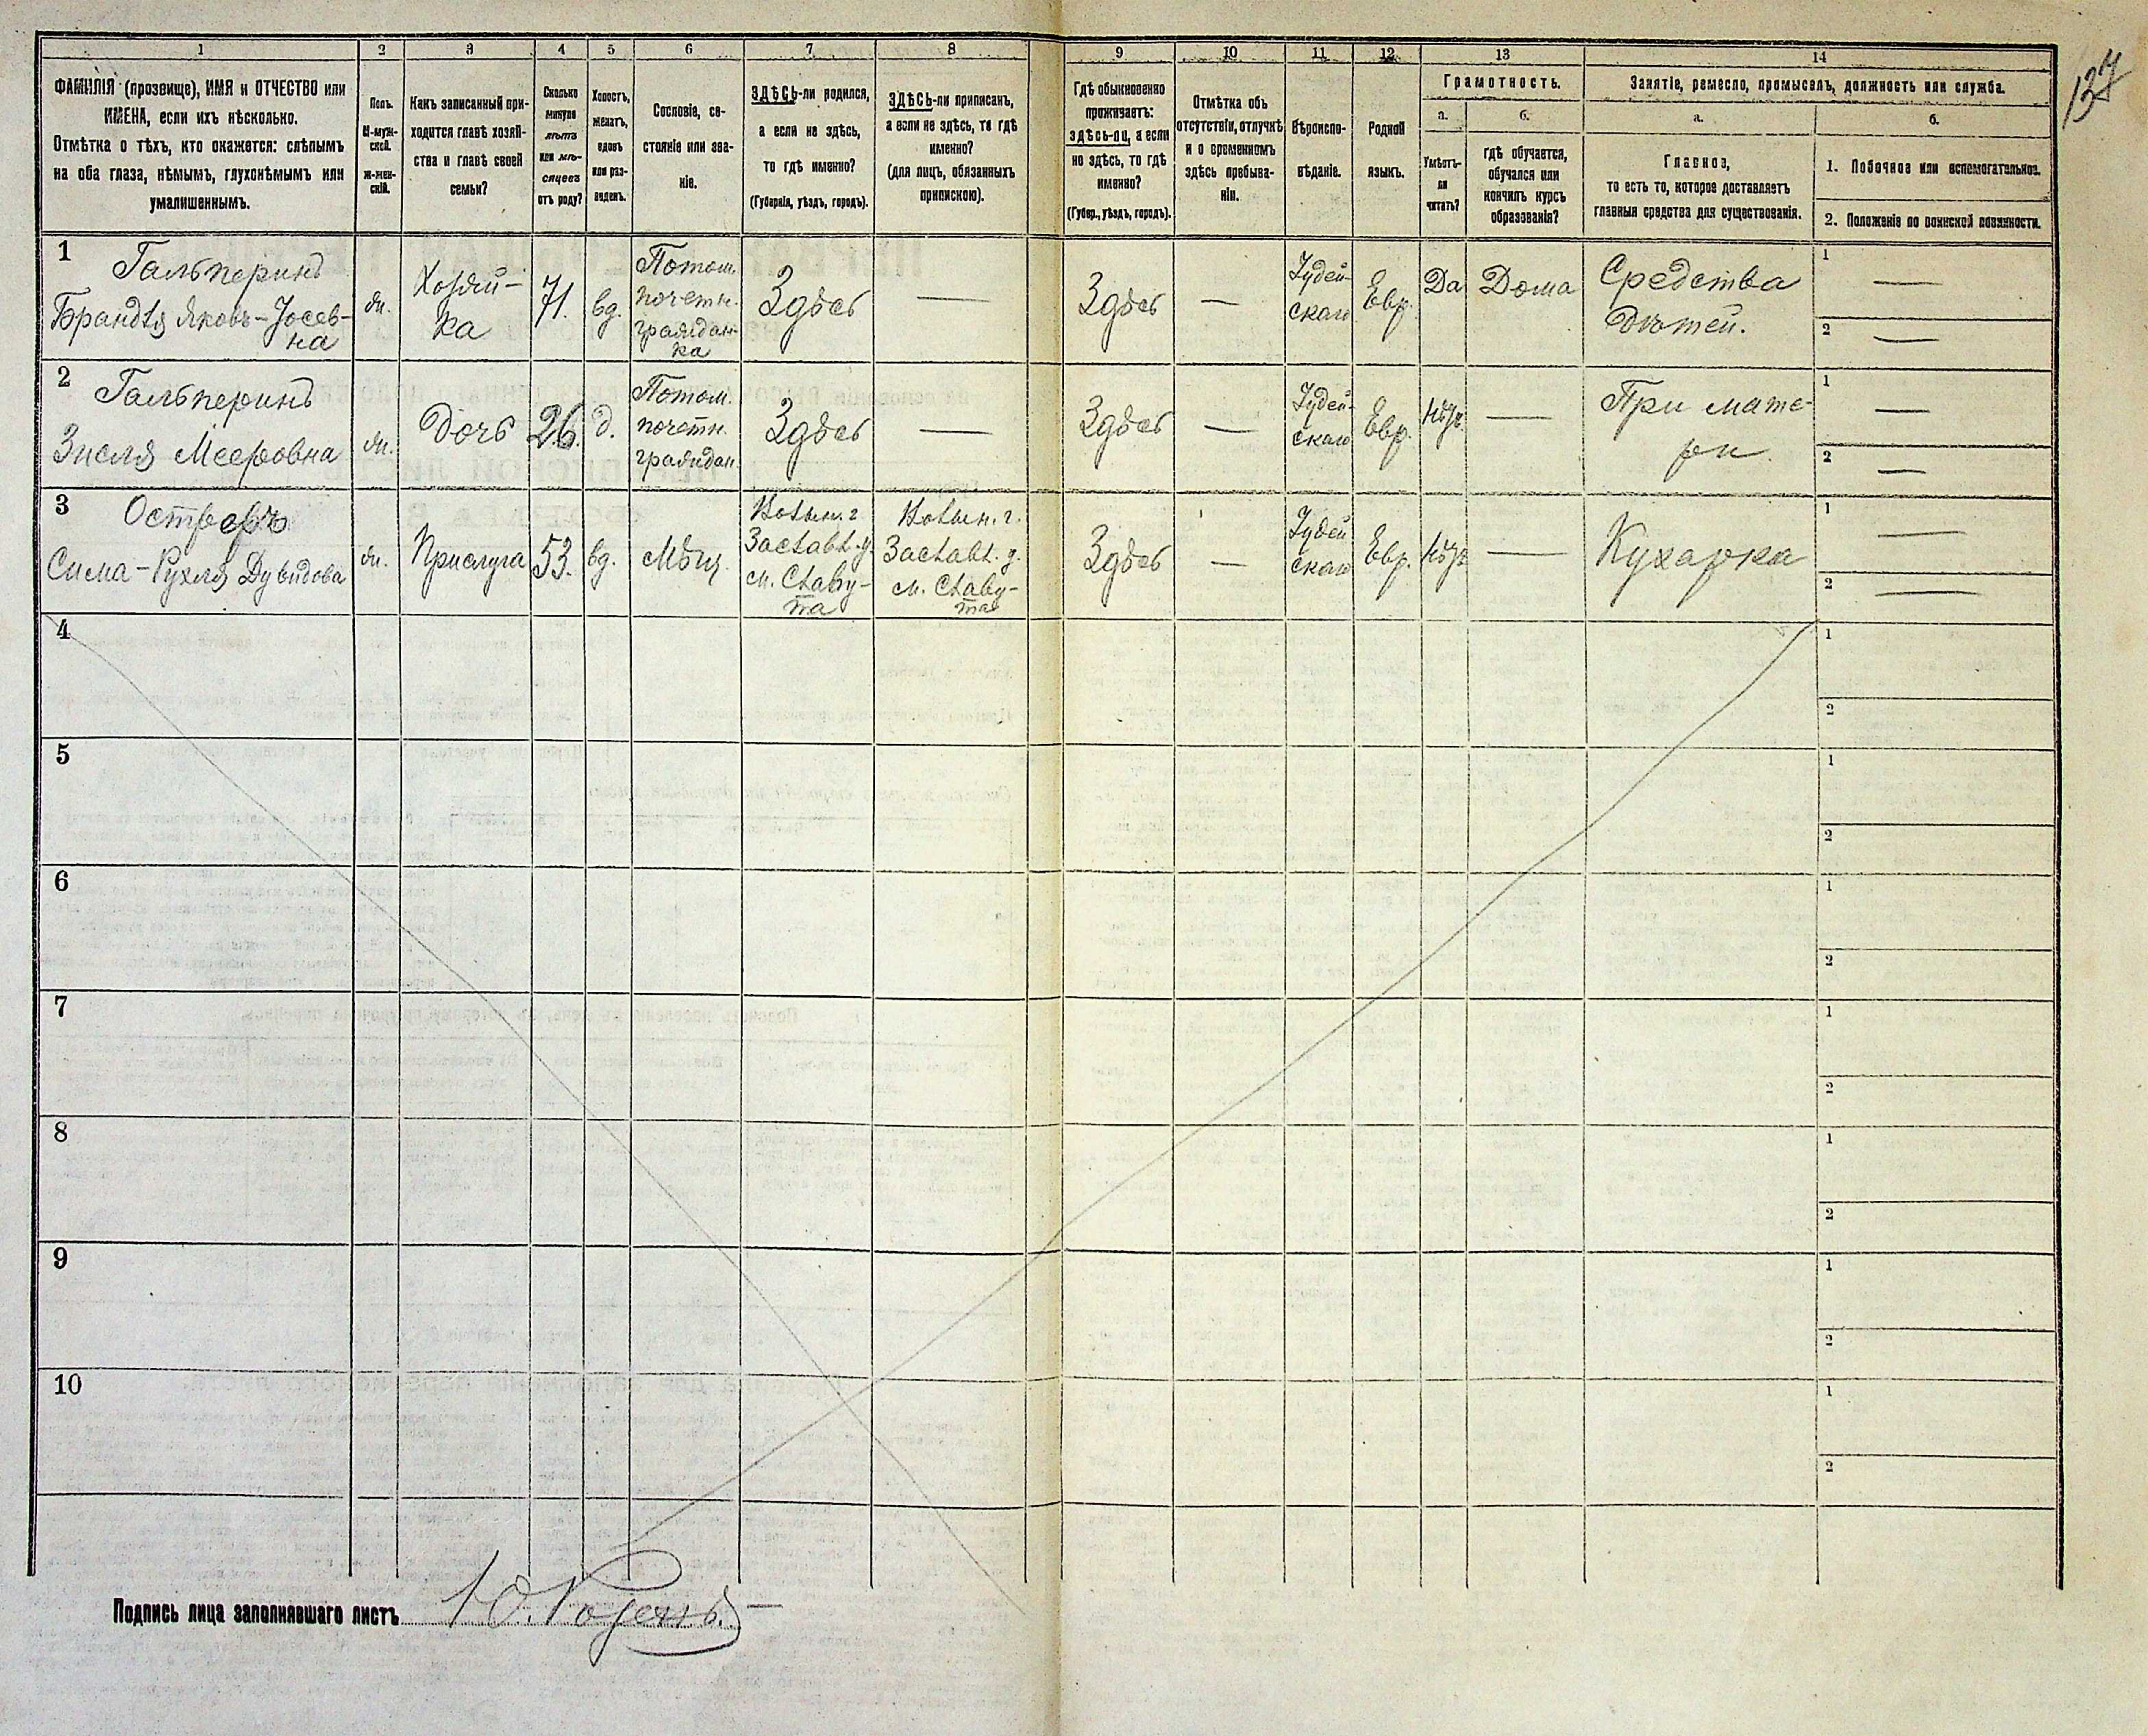 137
1 2 3 4 5 6 7 8 9 10 11 12 13 14
ФАМИЛІЯ (прозвище), ИМЯ и ОТЧЕСТВО или
ИМЕНА, если ихъ нѣсколько.
Отмѣтка о тѣхъ, кто окажется: слѣпымъ
на оба глаза, нѣмымъ, глухонѣмымъ или
умалишеннымъ.
Полъ.
М-муж-
ской.
ж-жен-
скій.
Какъ записанный при-
ходится главѣ хозяй-
ства и главѣ своей
семьи?
Сколько
минуло
лѣтъ
или мѣ-
сяцевъ
отъ роду?
Холостъ,
женатъ,
вдовъ
или раз-
веденъ.
Сословіе, со-
стояніе или зва-
ніе.
ЗДѢСЬ-ли родился,
а если не здѣсь,
то гдѣ именно?
(Губернія, уѣздъ, городъ).
ЗДѢСЬ-ли приписанъ,
а если не здѣсь, то гдѣ
именно?
(для лицъ, обязанныхъ
припискою).
Гдѣ обыкновенно
проживаетъ:
здѣсь-ли, а если
не здѣсь, то гдѣ
именно?
(Губер., уѣздъ, городъ).
Отмѣтка объ
отсутствіи, отлучкѣ
и о временномъ
здѣсь пребыва-
ніи.
Вѣроиспо-
вѣданіе.
Родной
языкъ.
Грамотность.
а.
Умѣетъ-
ли
читать?
б.
гдѣ обучается,
обучался или
кончилъ курсъ
образованія?
Занятіе, ремесло, промыселъ, должность или служба.
а.
Главное,
то есть то, которое доставляетъ
главныя средства для существованія.
б.
1. Побочное или вспомогательное.
2. Положеніе по воинской повинности.
1
Гальперинъ
Брандля Яковъ-Іосев-
на
жн.
Хозяй-
ка
71.
вд.
Потом.
почетн.
граждан-
ка
Здѣсь
—
Здѣсь
—
Іудей-
ская
Евр.
Да
Дома
Средства
Дѣтей.
1 —
2 —
2
Гальперинъ
Зисля Мееровна
жн.
Дочь
26.
д.
Потом.
почетн.
граждан.
Здѣсь
—
Здѣсь
—
Іудей-
ская
Евр.
Нѣтъ
—
При мате-
ри.
1 —
2 —
3
Сима-Рухля Дувидова
жн.
Прислуга
53.
вд.
Мѣщ.
Волын. г.
Заславл. у.
м. Славу-
та
Волын. г.
Заславл. у.
м. Славу-
та
Здѣсь
—
Іудей
ская
Евр.
Нѣтъ
—
Кухарка
1 —
2 —
4
1
2
5
1
2
6
1
2
7
1
2
8
1
2
9
1
2
10
1
2
Подпись лица заполнявшаго листъ